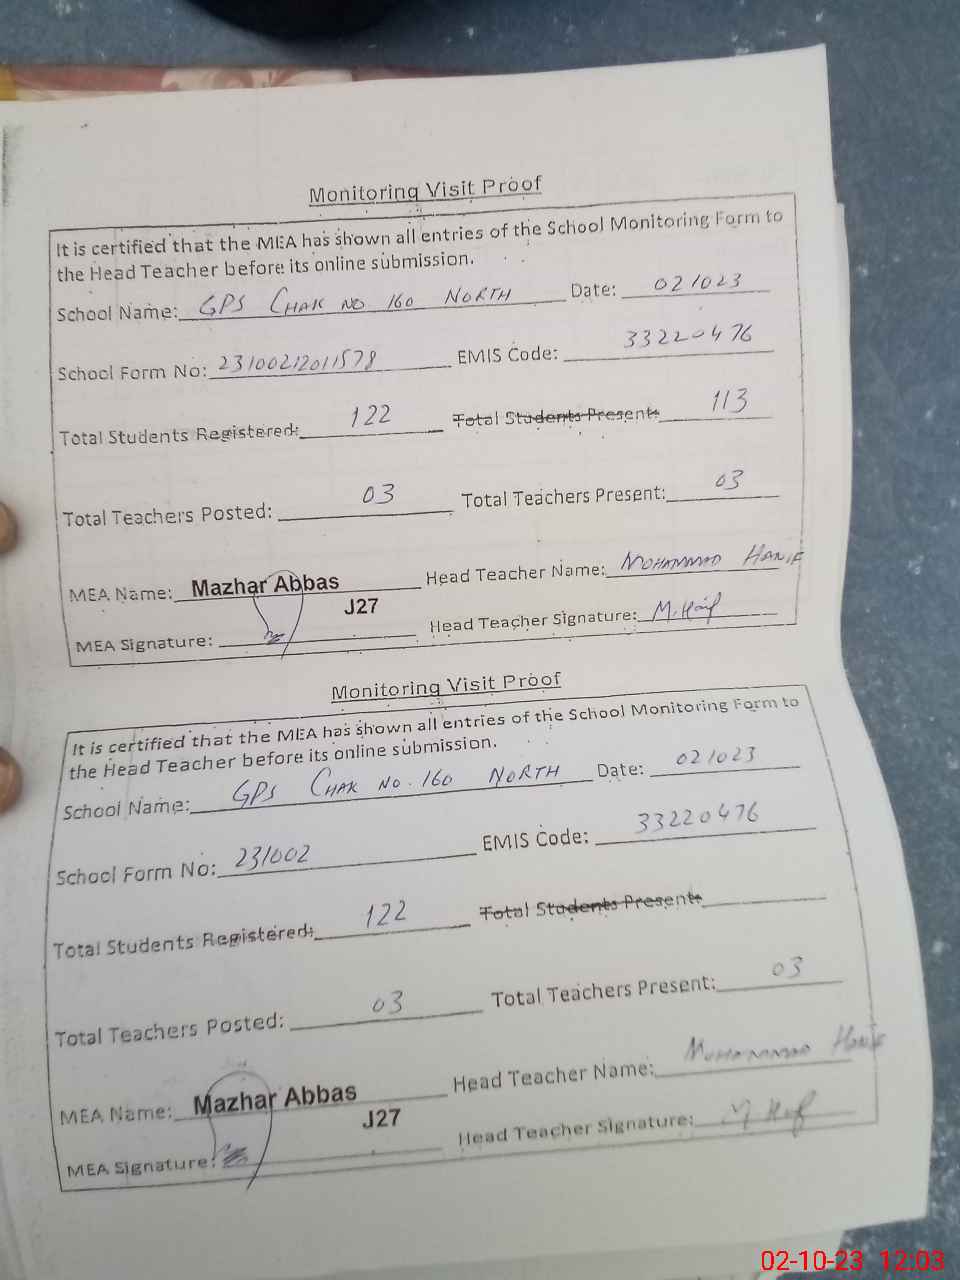 Monitoring Visit Proof
It is certified that the MEA has shown all entries of the School Monitoring Form to
the Head Teacher before its online submission.
School Name: GPS CHAK NO 160 NORTH Date: 021023
School Form No: 23100212011578 EMIS Code: 33220476
Total Students Registered: 122 Total Students Present: 113
Total Teachers Posted: 03 Total Teachers Present: 03
MEA Name: Mazhar Abbas Head Teacher Name: MOHAMMAD HANIF
J27
MEA Signature: Head Teacher Signature: M. Hanif
Monitoring Visit Proof
It is certified that the MEA has shown all entries of the School Monitoring Form to
the Head Teacher before its online submission.
School Name: GPS CHAK NO. 160 NORTH Date: 021023
School Form No: 231002 EMIS Code: 33220476
Total Students Registered: 122 Total Students Present:
Total Teachers Posted: 03 Total Teachers Present: 03
MEA Name: Mazhar Abbas Head Teacher Name: MUHAMMAD HANIF
J27
MEA Signature: Head Teacher Signature:
02-10-23 12:03